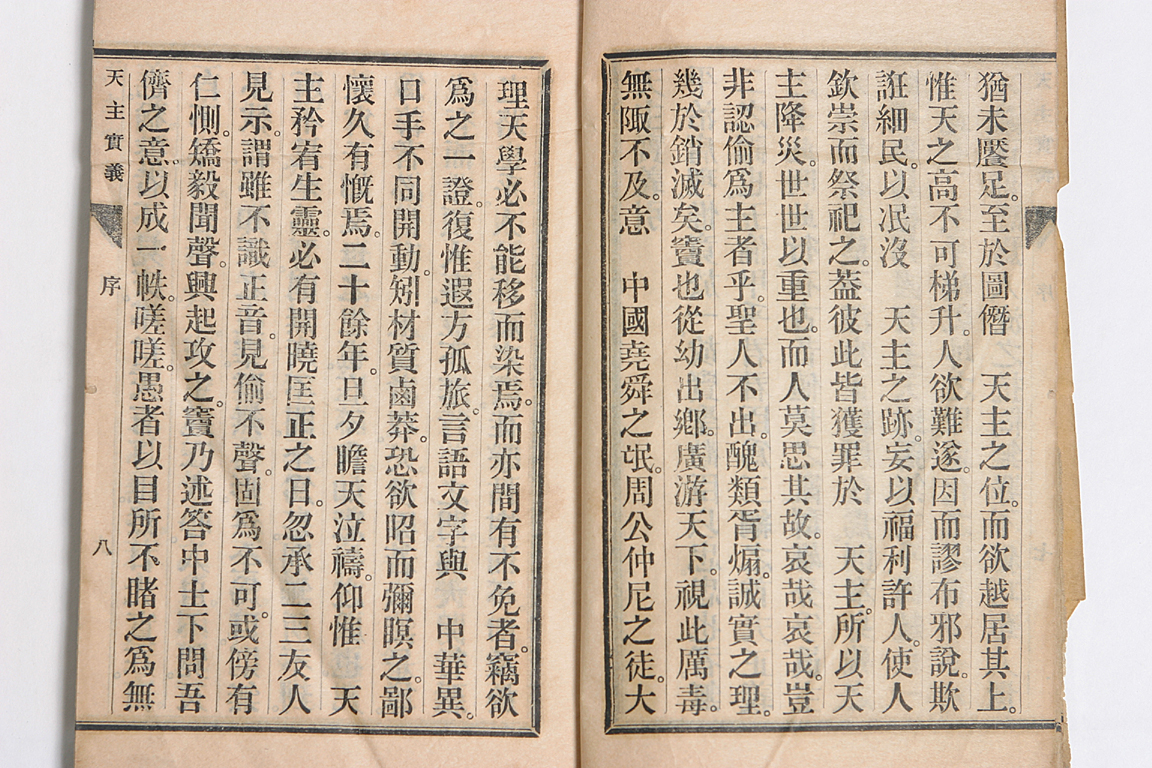 猶未饜足。至於圖僭　天主之位。而欲越居其上。
惟天之高不可梯升。人欲難遂。因而謬布邪說。欺
誑細民。以泯沒　天主之跡。妄以福利許人。使人
欽崇而祭祀之。葢彼此皆獲罪於　天主。所以天
主降災。世世以重也。而人莫思其故。哀哉哀哉。豈
非認偷爲主者乎。聖人不出。醜類胥煽。誠實之理。
幾於銷滅矣。竇也從幼出鄉。廣游天下。視此厲毒。
無陬不及。意　中國堯舜之氓。周公仲尼之徒。大
理天學必不能移而染焉。而亦間有不免者。竊欲
爲之一證。復惟遐方孤旅。言語文字與　中華異。
口手不同開動。矧材質鹵莽。恐欲昭而彌暝之。鄙
懷久有慨焉。二十餘年。旦夕瞻天泣禱。仰惟　天
主矜宥生靈。必有開曉匡正之日。忽承二三友人
見示。謂雖不識正音。見偷不聲。固爲不可。或傍有
仁惻。矯毅聞聲。興起攻之。竇乃述答中士下問吾
儕之意。以成一帙。嗟嗟。愚者以目所不睹之爲無
天主實義　序　八